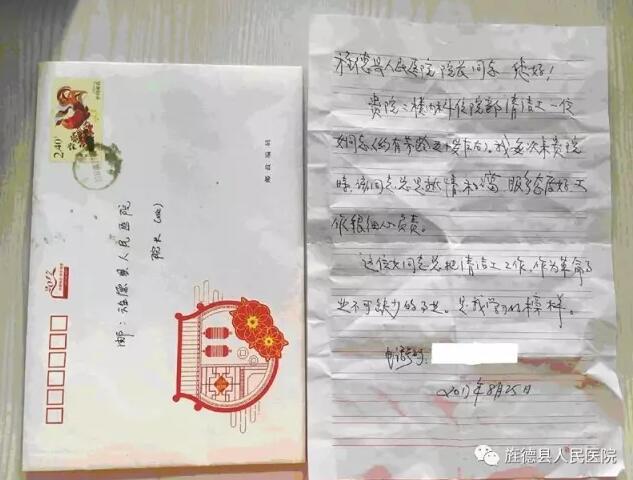 2.40元
邮政编码
邮：旌德县人民医院
院长（收）
旌德县人民医院院长同志 您好！
贵院二楼外科住院部清洁工一位
女同志（约有年龄五十岁左右），我每次来贵院
时，该同志总是热情和蔼，服务态度好，工
作很细心负责。
这位女同志把清洁工工作，作为革命事
业不可缺少的事业。是我学习的榜样。
2017年8月25日
旌德县人民医院